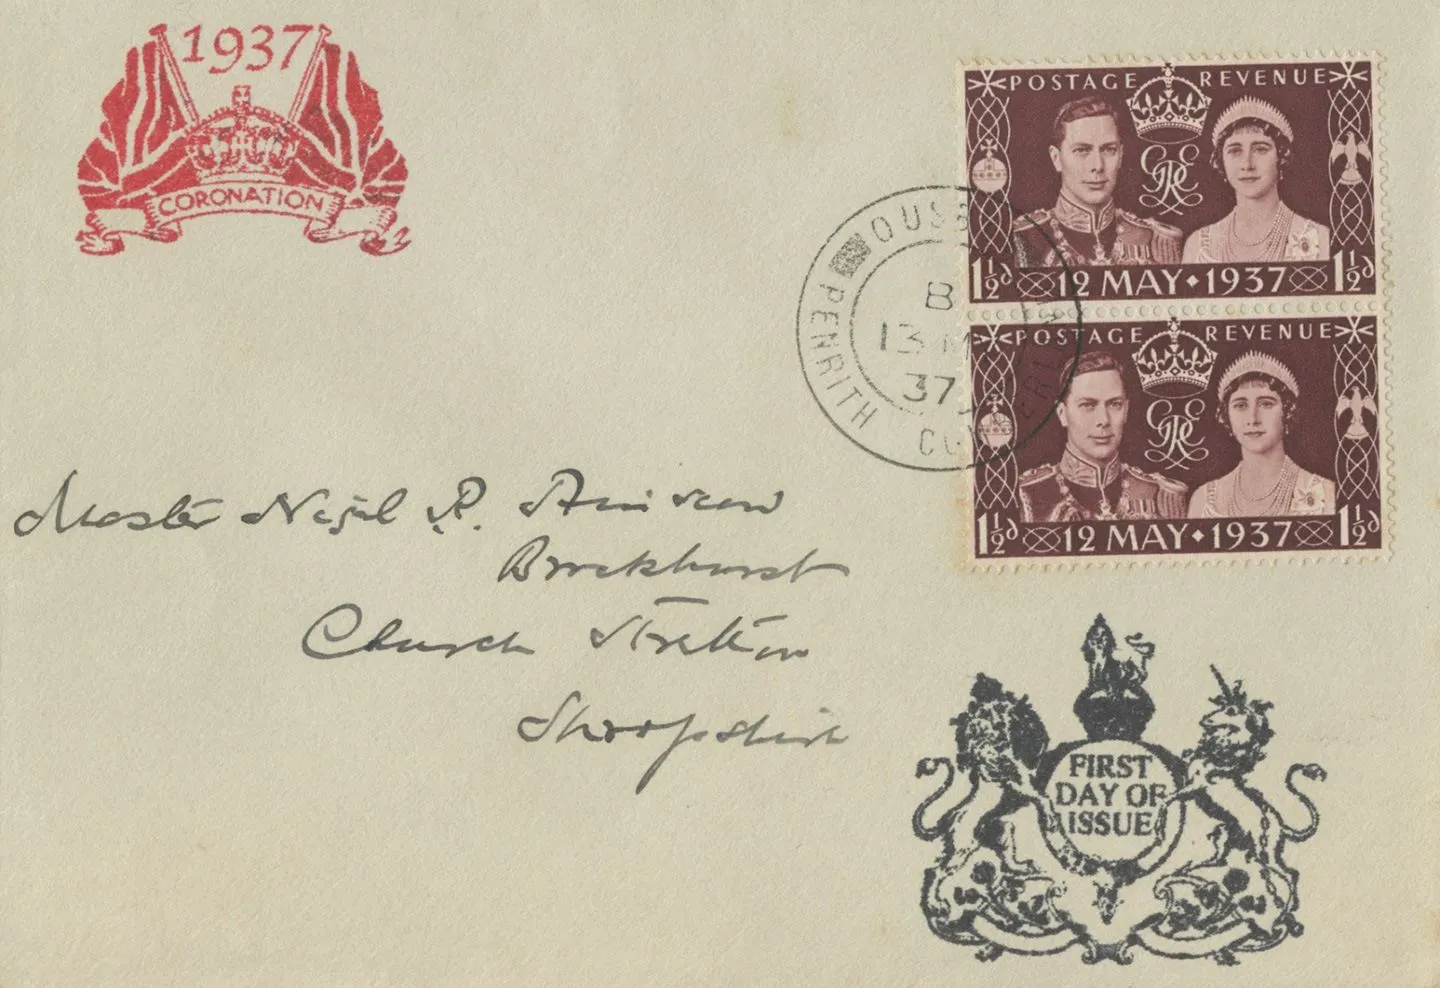 1937
CORONATION
POSTAGE REVENUE
1½d 12 MAY 1937 1½d
POSTAGE REVENUE
1½d 12 MAY 1937 1½d
PENRITH
B
13 M
37
Master Nigel P.
Brockhurst
Church Stretton
Shropshire
FIRST
DAY OF
ISSUE